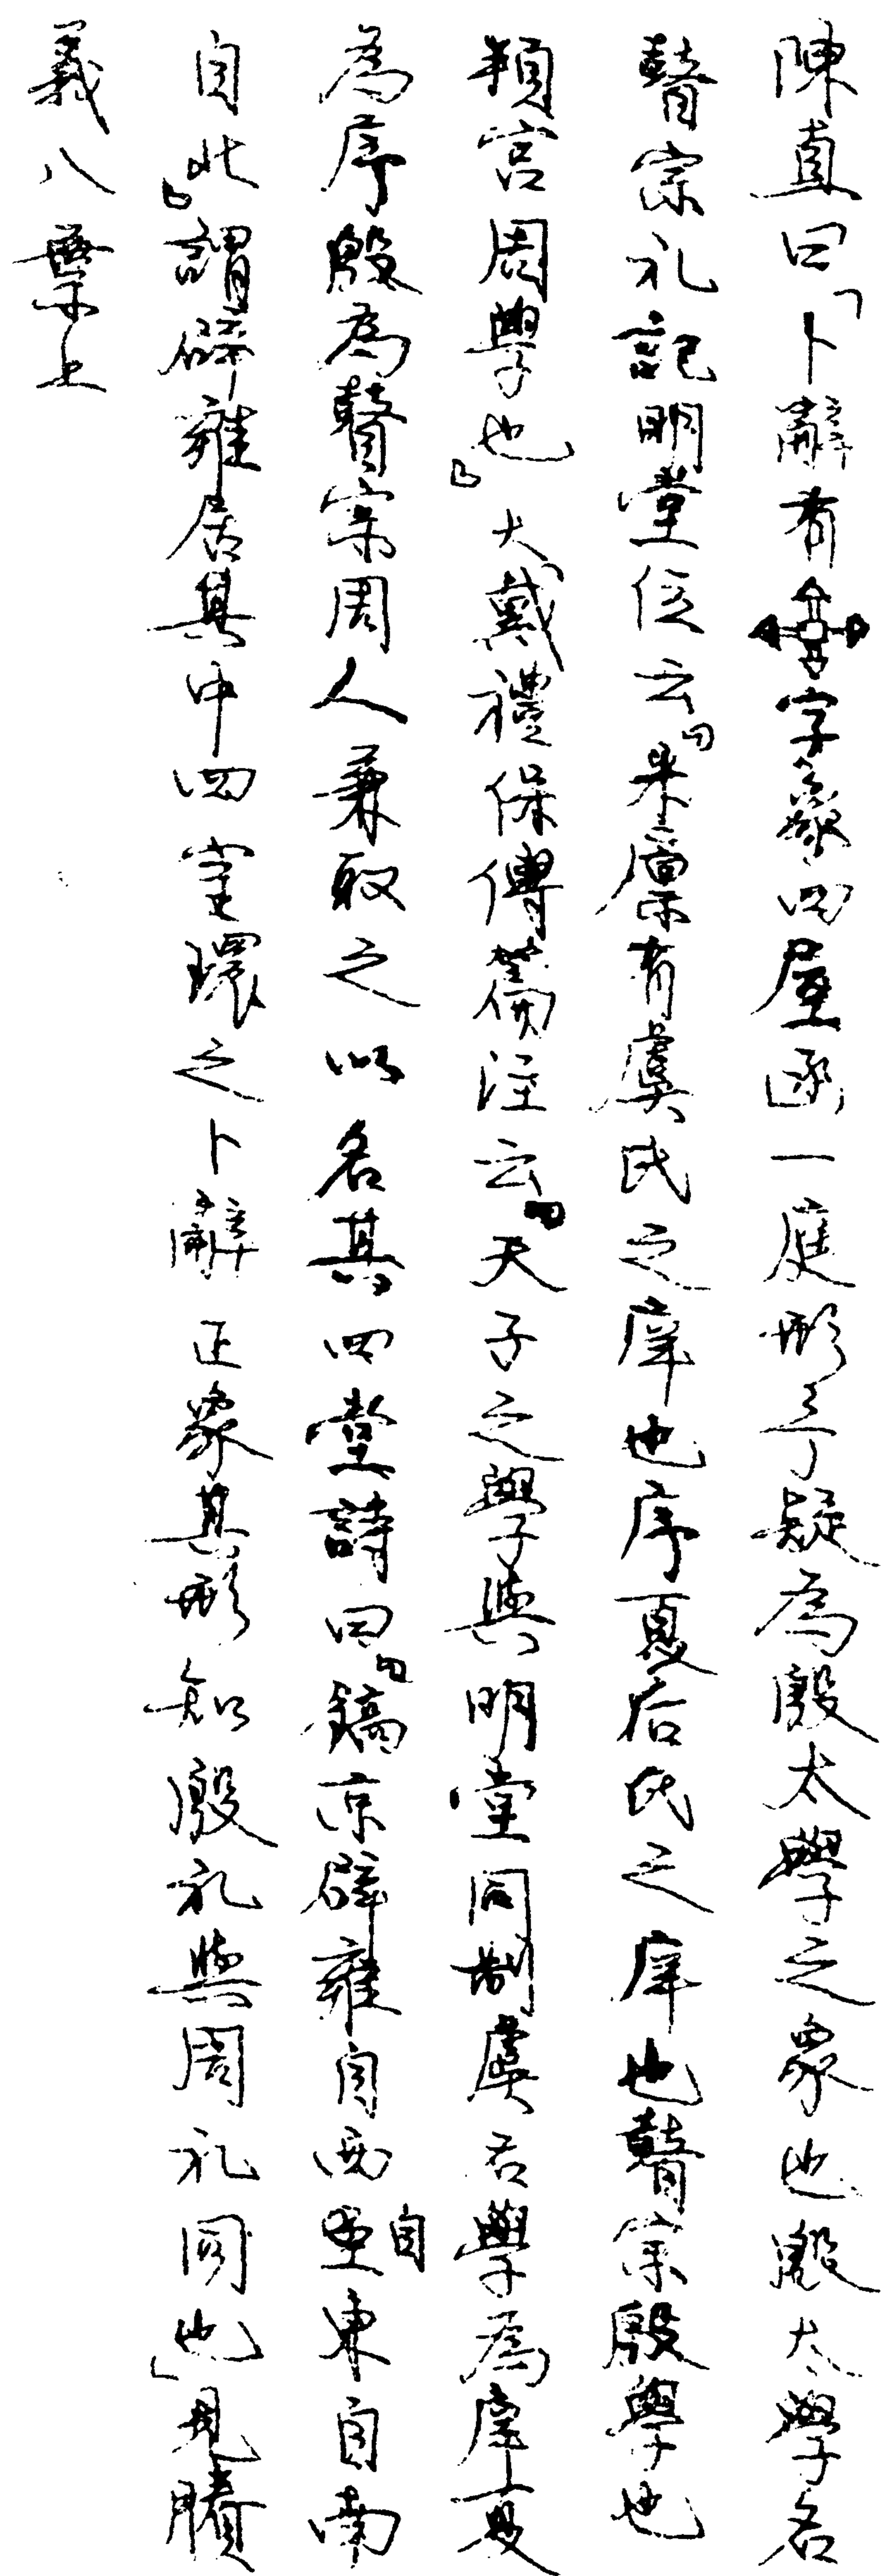 陳直曰「卜辭有字象四屋函一庭形予疑為殷太學之象也殷大學名
瞽宗礼記明堂位云『米廩有虞氏之庠也序夏后氏之庠也瞽宗殷學也
頖宮周學也』大戴禮保傅篇注云『天子之學與明堂同制虞名學為庠夏
為序殷為瞽宗周人兼取之以名其四堂詩曰『鎬京辟雍自西自東自南
自北』謂辟雍居其中四室環之卜辭正象其形知殷礼與周礼同也」見賸
義八葉上